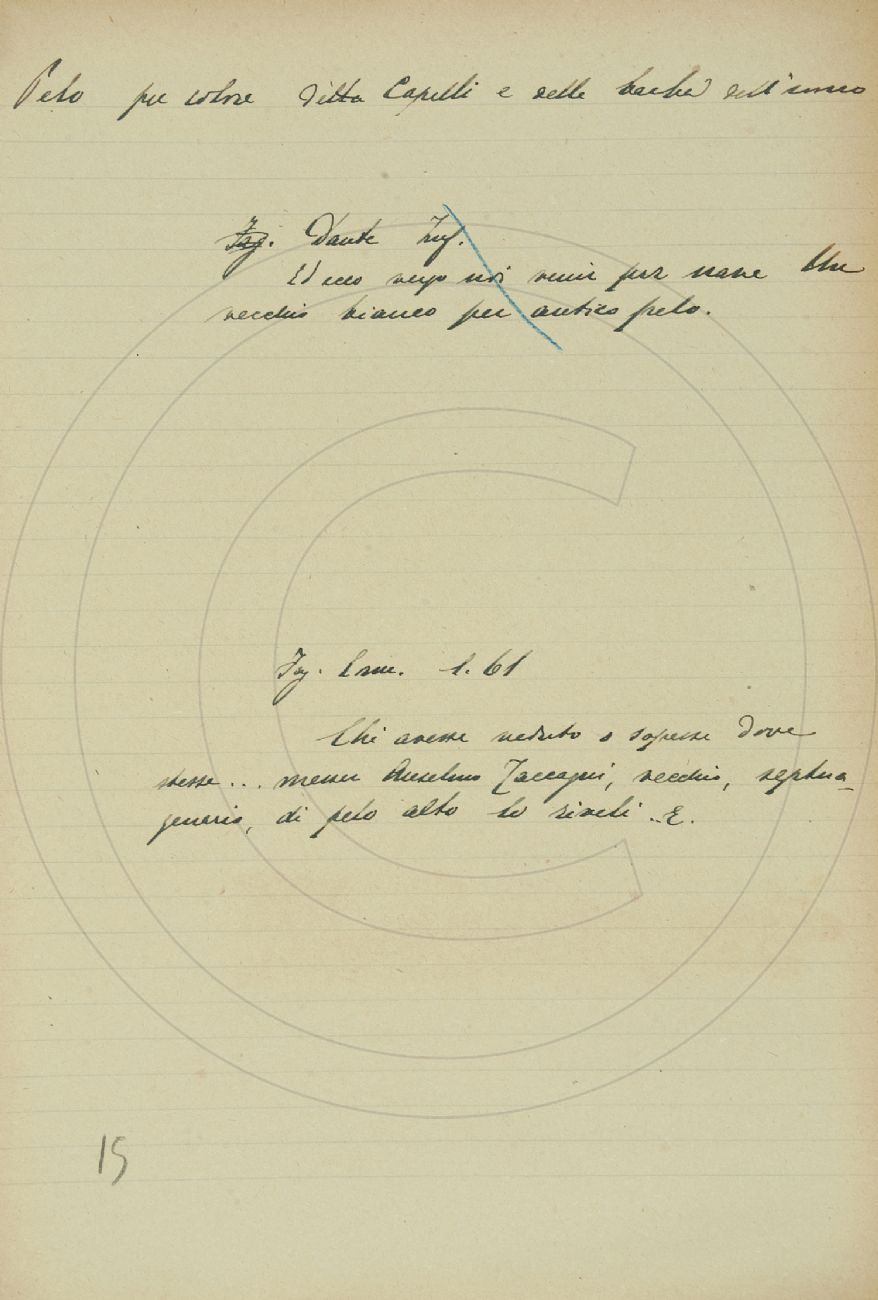 Pelo per colore della Capelli e delle barbe dell'uomo
Fag. Dante Inf.
Ed ecco verso noi venir per nave Un
vecchio bianco per antico pelo.
Fag. Com. 1. 61
Chi avesse veduto o sapesse dove
stesse... messer Anselmo Zaccagni, vecchio, septua-
genario, di pelo albo lo riveli..E.
15